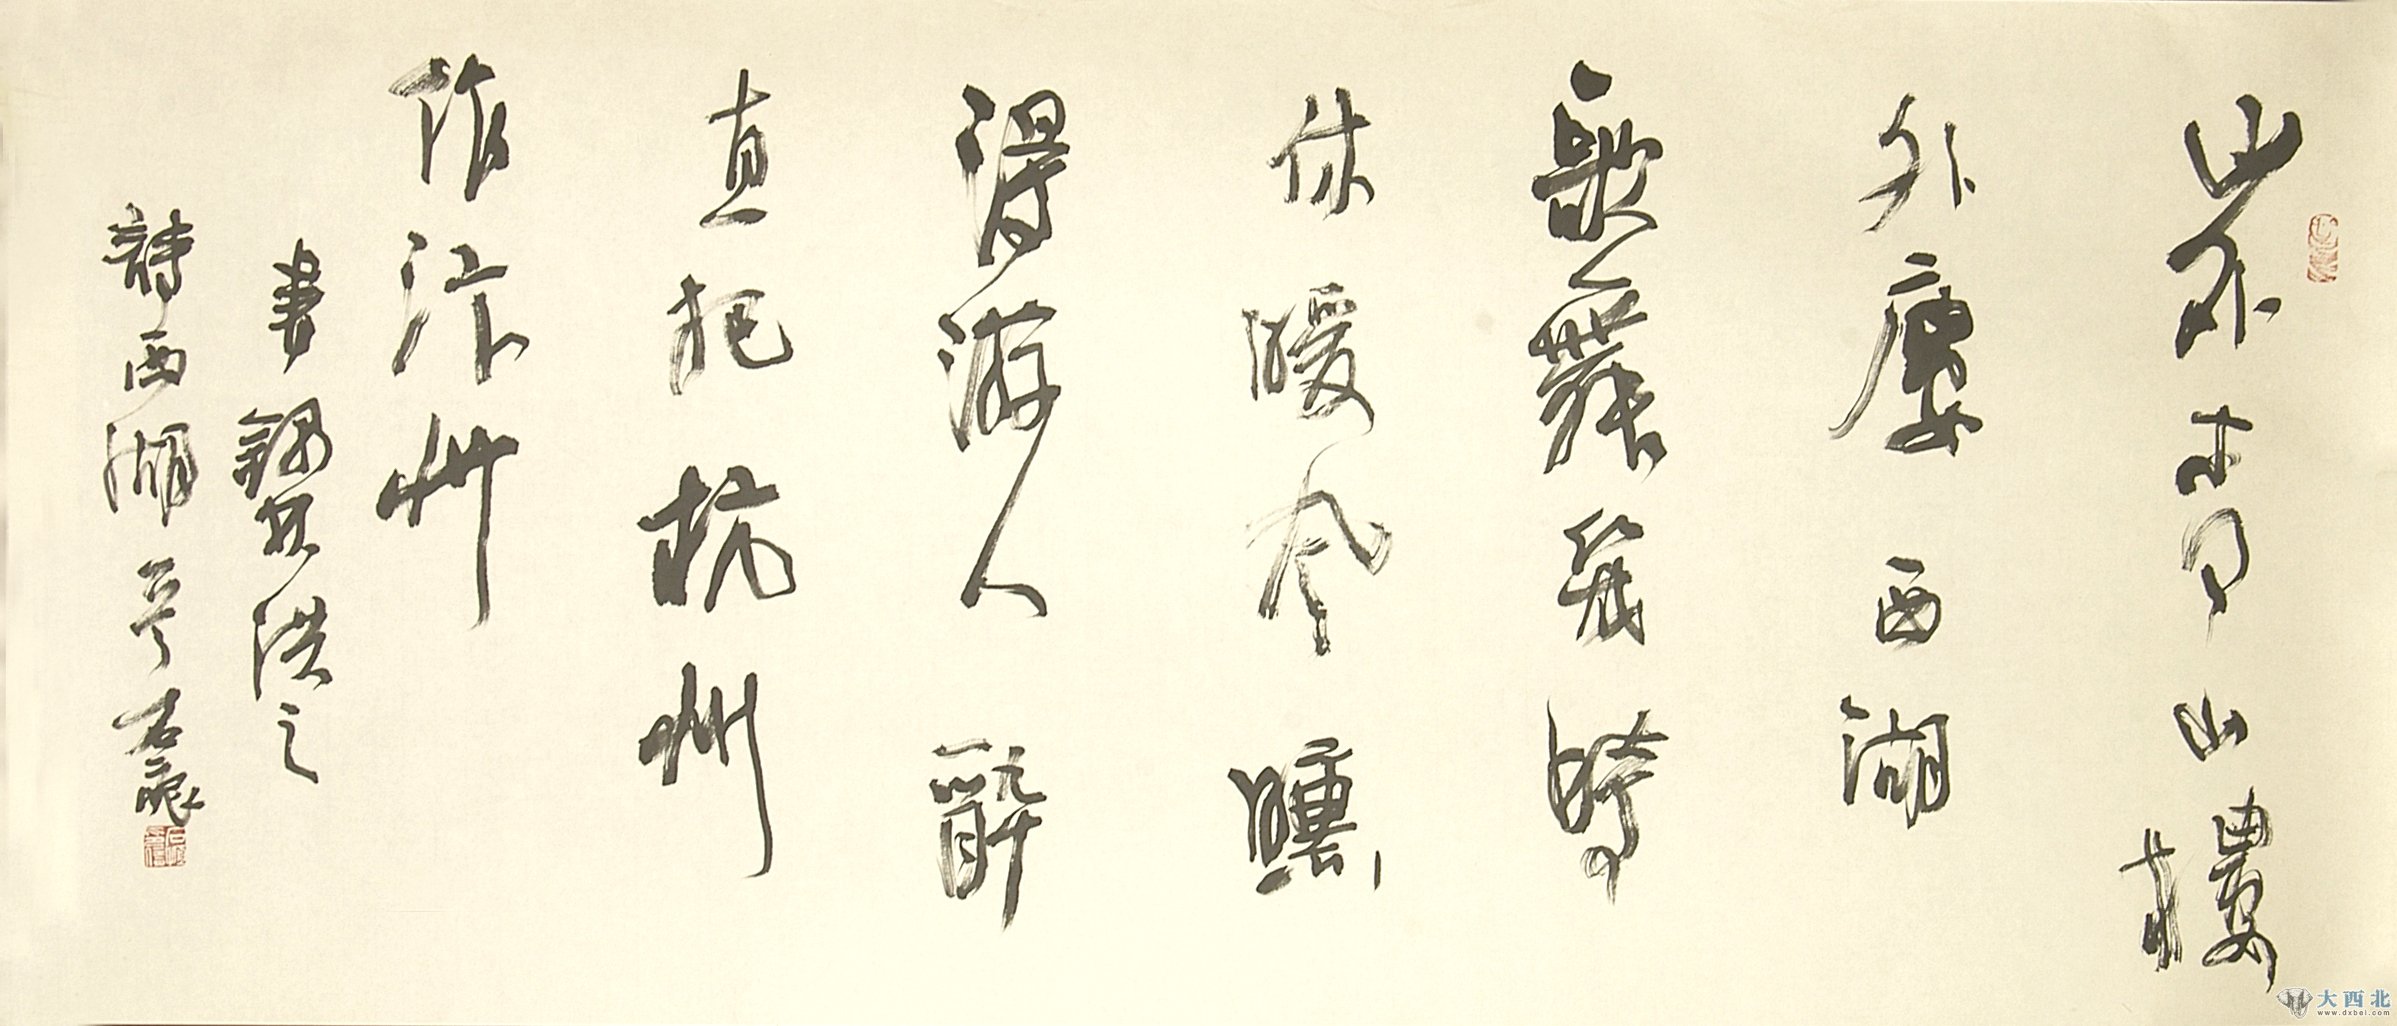 山外青山樓
外廔西湖
歌舞幾時
休暖風曛
得游人醉
直把杭州
作汴州
書林洪之
詩西湖
大西北
www.dxbei.com